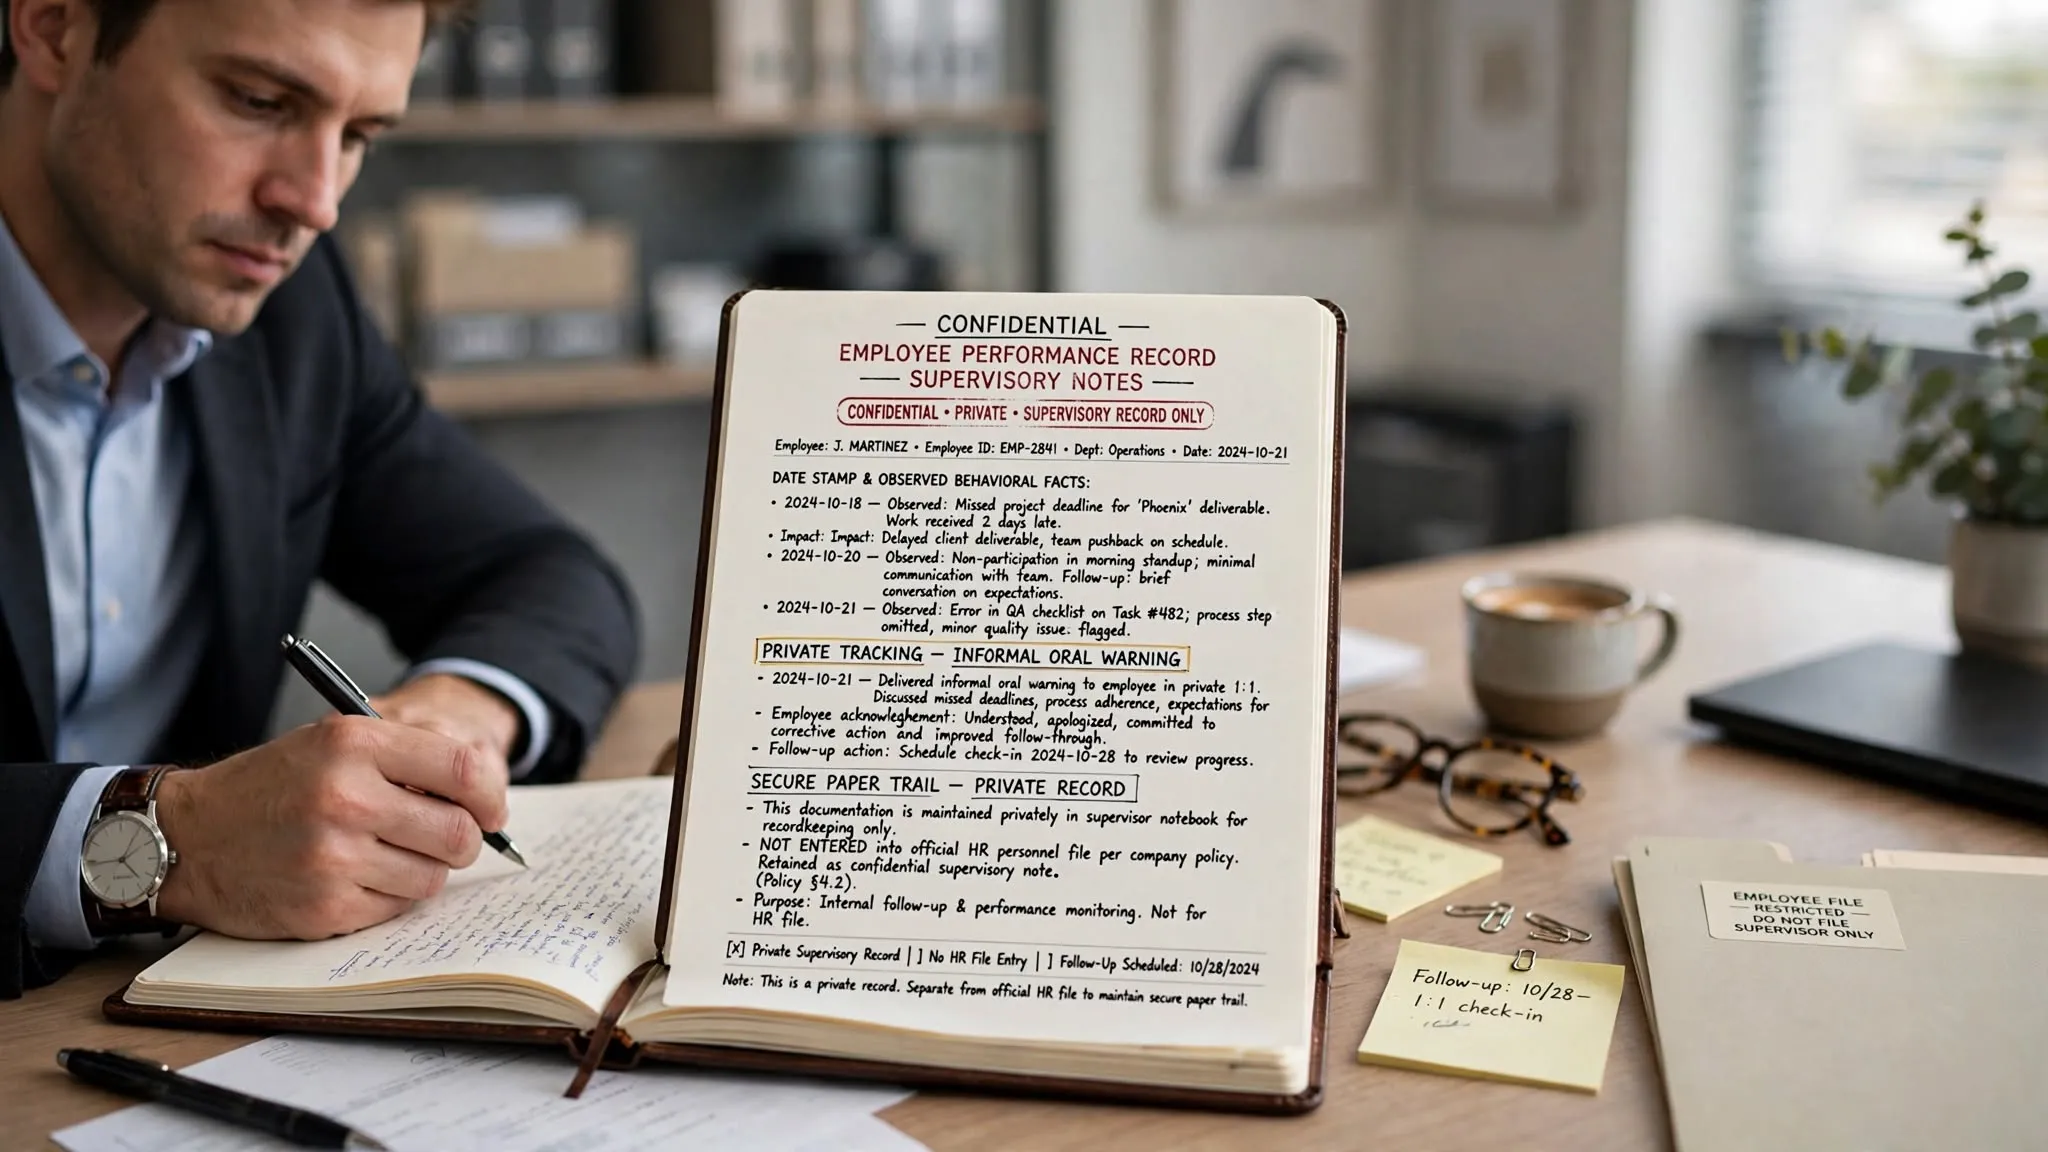 — CONFIDENTIAL —
EMPLOYEE PERFORMANCE RECORD
— SUPERVISORY NOTES —
CONFIDENTIAL • PRIVATE • SUPERVISORY RECORD ONLY
Employee: J. MARTINEZ • Employee ID: EMP-2841 • Dept: Operations • Date: 2024-10-21
DATE STAMP & OBSERVED BEHAVIORAL FACTS:
• 2024-10-18 — Observed: Missed project deadline for 'Phoenix' deliverable.
Work received 2 days late.
• Impact: Impact: Delayed client deliverable, team pushback on schedule.
• 2024-10-20 — Observed: Non-participation in morning standup; minimal
communication with team. Follow-up: brief
conversation on expectations.
• 2024-10-21 — Observed: Error in QA checklist on Task #482; process step
omitted, minor quality issue: flagged.
PRIVATE TRACKING — INFORMAL ORAL WARNING
- 2024-10-21 — Delivered informal oral warning to employee in private 1:1.
Discussed missed deadlines, process adherence, expectations for
- Employee acknowleghement: Understood, apologized, committed to
corrective action and improved follow-through.
- Follow-up action: Schedule check-in 2024-10-28 to review progress.
SECURE PAPER TRAIL — PRIVATE RECORD
- This documentation is maintained privately in supervisor notebook for
recordkeeping only.
- NOT ENTERED into official HR personnel file per company policy.
Retained as confidential supervisory note.
(Policy §4.2).
- Purpose: Internal follow-up & performance monitoring. Not for
HR file.
[X] Private Supervisory Record | ] No HR File Entry | ] Follow-Up Scheduled: 10/28/2024
Note: This is a private record. Separate from official HR file to maintain secure paper trail.
EMPLOYEE FILE
— RESTRICTED —
DO NOT FILE
SUPERVISOR ONLY
Follow-up: 10/28—
1:1 check-in